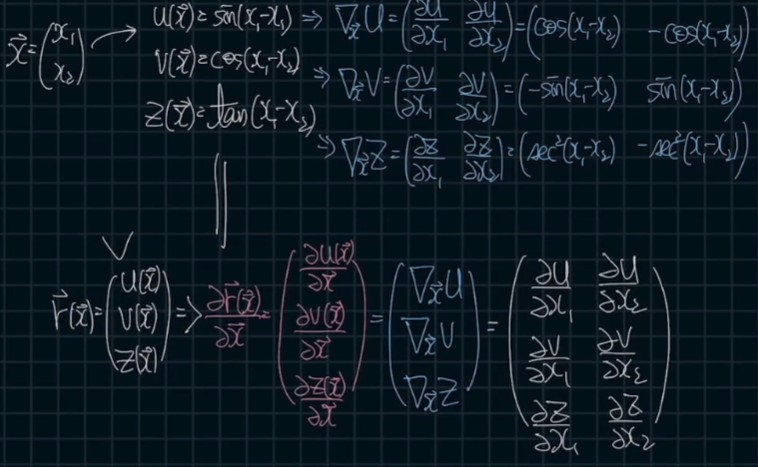 x⃗ = (x₁ x₂) → u(x⃗) = sin(x₁-x₂) ⇒ ∇_x⃗ U = (∂U/∂x₁ ∂U/∂x₂) = (cos(x₁-x₂) -cos(x₁-x₂))
v(x⃗) = cos(x₁-x₂) ⇒ ∇_x⃗ V = (∂V/∂x₁ ∂V/∂x₂) = (-sin(x₁-x₂) sin(x₁-x₂))
z(x⃗) = tan(x₁-x₂) ⇒ ∇_x⃗ Z = (∂Z/∂x₁ ∂Z/∂x₂) = (sec²(x₁-x₂) -sec²(x₁-x₂))
r⃗(x⃗) = (u(x⃗) v(x⃗) z(x⃗)) => ∂r⃗(x⃗)/∂x⃗ = (∂u(x⃗)/∂x⃗ ∂v(x⃗)/∂x⃗ ∂z(x⃗)/∂x⃗) = (∇_x⃗ U ∇_x⃗ V ∇_x⃗ Z) = (∂U/∂x₁ ∂U/∂x₂ ∂V/∂x₁ ∂V/∂x₂ ∂Z/∂x₁ ∂Z/∂x₂)